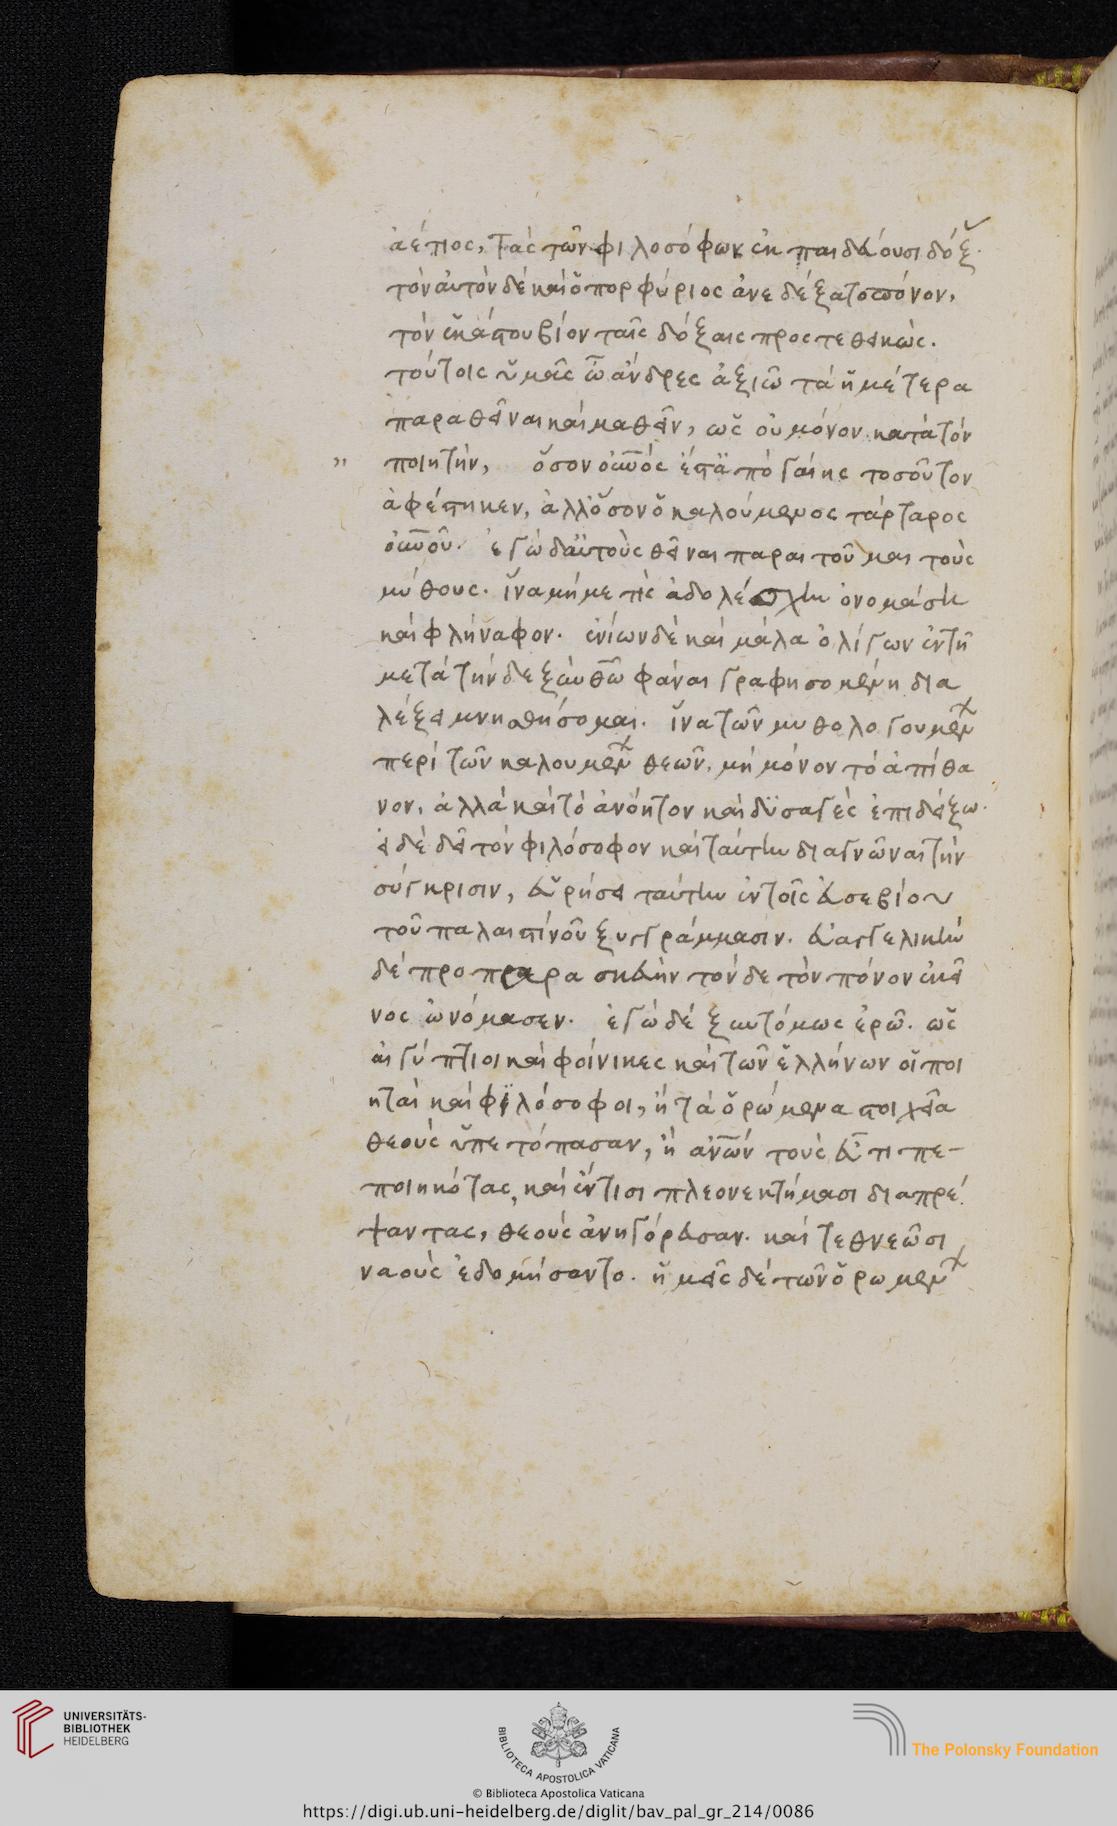 ἀέτιος, τὰς τῶν φιλοσόφων ἐκπαιδεύουσι δόξ
τὸν αὐτὸν δὲ καὶ ὁ πορφύριος ἀνεδέξατο πόνον,
τὸν ἑκάστου βίον ταῖς δόξαις προστεθεικώς.
τούτοις ὑμᾶς ὦ ἄνδρες ἀξιῶ τὰ ἡμέτερα
παραθεῖναι καὶ μαθεῖν, ὡς οὐ μόνον κατὰ τὸν
" ποιητήν, ὅσον οὐνός ἐστ' ἀπὸ γαίης τοσοῦτον
ἀφέστηκεν, ἀλλ' ὅσον ὁ καλούμενος τάρταρος
οὐνοῦ. ἐγὼ δ' αὐτοὺς θεῖναι παραιτοῦμαι τοὺς
μύθους. ἵνα μή με τὶς ἀδολέσχην ὀνομάση
καὶ φλήναφον. ἐνίων δὲ καὶ μάλα ὀλίγων ἐν τῇ
μετὰ τήνδε ξὺν θῶ φάναι γραφησομένη δια
λέξει μνησθήσομαι. ἵνα τῶν μυθολογουμέν
περὶ τῶν καλουμέν θεῶν, μὴ μόνον τὸ ἀπίθα
νον, ἀλλὰ καὶ τὸ ἀνόητον καὶ δυσαγὲς ἐπιδείξω.
εἰ δὲ δεῖ τὸν φιλόσοφον καὶ ταύτην διαγνῶναι τὴν
σύγκρισιν, εὑρήσει ταύτην ἐν τοῖς εὐσεβίου
τοῦ παλαιστίνου ξυγγράμμασιν. εὐαγγελικὴν
δὲ προπαρασκευὴν τόνδε τὸν πόνον ἐκεῖ
νος ὠνόμασεν. ἐγὼ δὲ ξυντόμως ἐρῶ. ὡς
αἰγύπτιοι καὶ φοίνικες καὶ τῶν ἑλλήνων οἱ ποι
ηταὶ καὶ φιλόσοφοι, ἢ τὰ ὁρώμενα στοιχεῖα
θεοὺς ὑπετόπασαν, ἢ ἀνῶν τοὺς εὖ τι πε-
ποιηκότας, καὶ ἔν τισι πλεονεκτήμασι διαπρέ
ψαντας, θεοὺς ἀνηγόρευσαν. καὶ τεθνεῶσι
ναοὺς ἐδομήσαντο. ἡμεῖς δὲ τῶν ὁρωμέν
UNIVERSITÄTS-
BIBLIOTHEK
HEIDELBERG
BIBLIOTECA APOSTOLICA VATICANA
The Polonsky Foundation
© Biblioteca Apostolica Vaticana
https://digi.ub.uni-heidelberg.de/diglit/bav_pal_gr_214/0086